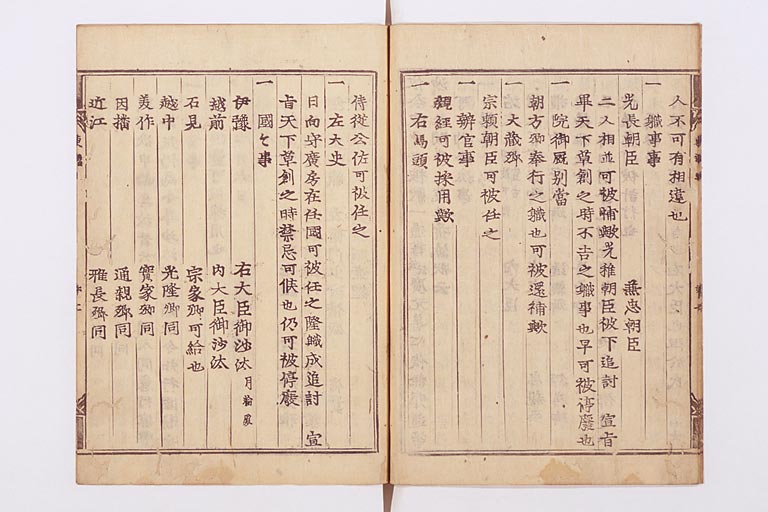 人不可有相違也
一 職事事
光長朝臣 兼忠朝臣
二人相並可被補歟光雅朝臣被下追討 宣旨
畢天下草創之時不吉之職事也早可被停廢也
一 院御厩別當
朝方卿奉行之職也可被還補歟
一 大藏卿
宗頼朝臣可被任之
一 辨官事
親経可被採用歟
一 右馬頭
侍従公佐可被任之
一 左大史
日向守廣房在任國可被任之隆職成追討 宣
旨天下草創之時禁忌可候也仍可被停廢
一 國々事
伊豫 右大臣御沙汰 月輪殿
越前 内大臣御沙汰
石見 宗家卿可給也
越中 光隆卿同
美作 實家卿同
因播 通親卿同
近江 雅長卿同